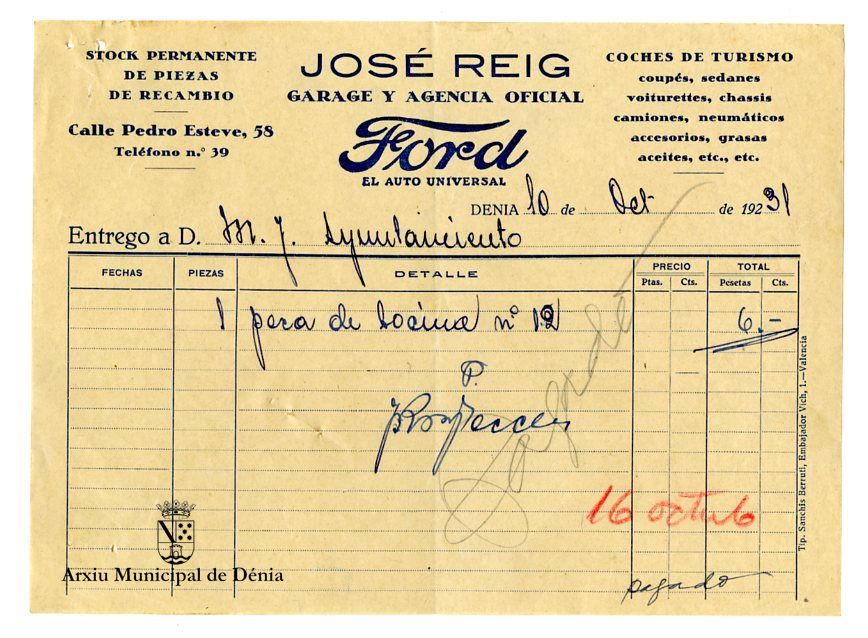 STOCK PERMANENTE
DE PIEZAS
DE RECAMBIO
Calle Pedro Esteve, 58
Teléfono n.º 39
JOSÉ REIG
GARAGE Y AGENCIA OFICIAL
Ford
EL AUTO UNIVERSAL
COCHES DE TURISMO
coupés, sedanes
voiturettes, chassis
camiones, neumáticos
accesorios, grasas
aceites, etc., etc.
DENIA 10 de Oct de 19231
Entrego a D. M. J. Ayuntamiento
FECHAS PIEZAS DETALLE PRECIO TOTAL
Ptas. Cts. Pesetas Cts.
1 pera de bocina nº 12 6.-
P.
Pagado
16 octub
pagado
Tip. Sanchis Berruti, Embajador Vich, 1.—Valencia
Arxiu Municipal de Dénia